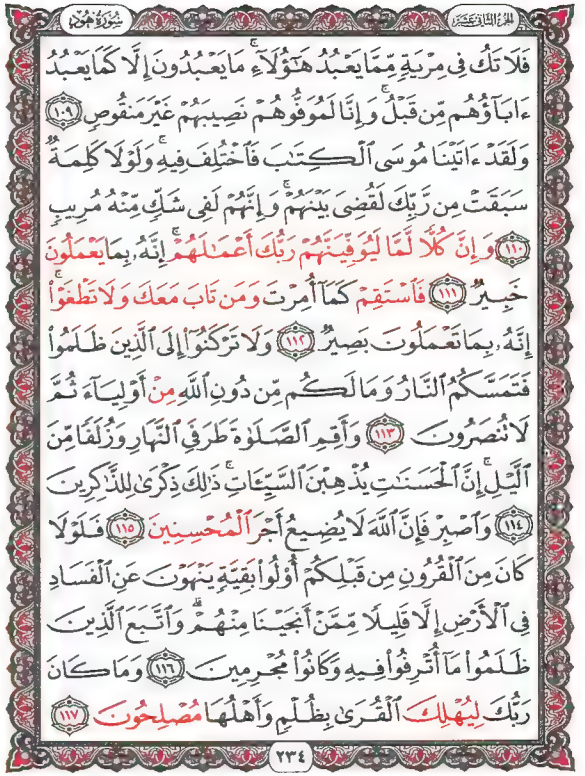 سُورَةُ هُودٍ
الجُزءُ الثَّانِي عَشَرَ
فَلَا تَكُ فِى مِرْيَةٍ مِّمَّا يَعْبُدُ هَٰٓؤُلَآءِ ۚ مَا يَعْبُدُونَ إِلَّا كَمَا يَعْبُدُ
ءَابَآؤُهُم مِّن قَبْلُ ۚ وَإِنَّا لَمُوَفُّوهُمْ نَصِيبَهُمْ غَيْرَ مَنقُوصٍ ١٠٩
وَلَقَدْ ءَاتَيْنَا مُوسَى ٱلْكِتَٰبَ فَٱخْتُلِفَ فِيهِ ۚ وَلَوْلَا كَلِمَةٌ
سَبَقَتْ مِن رَّبِّكَ لَقُضِىَ بَيْنَهُمْ ۚ وَإِنَّهُمْ لَفِى شَكٍّ مِّنْهُ مُرِيبٍ
١١٠ وَإِنَّ كُلًّا لَّمَّا لَيُوَفِّيَنَّهُمْ رَبُّكَ أَعْمَٰلَهُمْ ۚ إِنَّهُۥ بِمَا يَعْمَلُونَ
خَبِيرٌ ١١١ فَٱسْتَقِمْ كَمَآ أُمِرْتَ وَمَن تَابَ مَعَكَ وَلَا تَطْغَوْا۟ ۚ
إِنَّهُۥ بِمَا تَعْمَلُونَ بَصِيرٌ ١١٢ وَلَا تَرْكَنُوٓا۟ إِلَى ٱلَّذِينَ ظَلَمُوا۟
فَتَمَسَّكُمُ ٱلنَّارُ وَمَا لَكُم مِّن دُونِ ٱللَّهِ مِنْ أَوْلِيَآءَ ثُمَّ
لَا تُنصَرُونَ ١١٣ وَأَقِمِ ٱلصَّلَوٰةَ طَرَفَىِ ٱلنَّهَارِ وَزُلَفًا مِّنَ
ٱلَّيْلِ ۚ إِنَّ ٱلْحَسَنَٰتِ يُذْهِبْنَ ٱلسَّيِّـَٔاتِ ۚ ذَٰلِكَ ذِكْرَىٰ لِلذَّٰكِرِينَ
١١٤ وَٱصْبِرْ فَإِنَّ ٱللَّهَ لَا يُضِيعُ أَجْرَ ٱلْمُحْسِنِينَ ١١٥ فَلَوْلَا
كَانَ مِنَ ٱلْقُرُونِ مِن قَبْلِكُمْ أُو۟لُوا۟ بَقِيَّةٍ يَنْهَوْنَ عَنِ ٱلْفَسَادِ
فِى ٱلْأَرْضِ إِلَّا قَلِيلًا مِّمَّنْ أَنجَيْنَا مِنْهُمْ ۗ وَٱتَّبَعَ ٱلَّذِينَ
ظَلَمُوا۟ مَآ أُتْرِفُوا۟ فِيهِ وَكَانُوا۟ مُجْرِمِينَ ١١٦ وَمَا كَانَ
رَبُّكَ لِيُهْلِكَ ٱلْقُرَىٰ بِظُلْمٍ وَأَهْلُهَا مُصْلِحُونَ ١١٧
٢٣٤